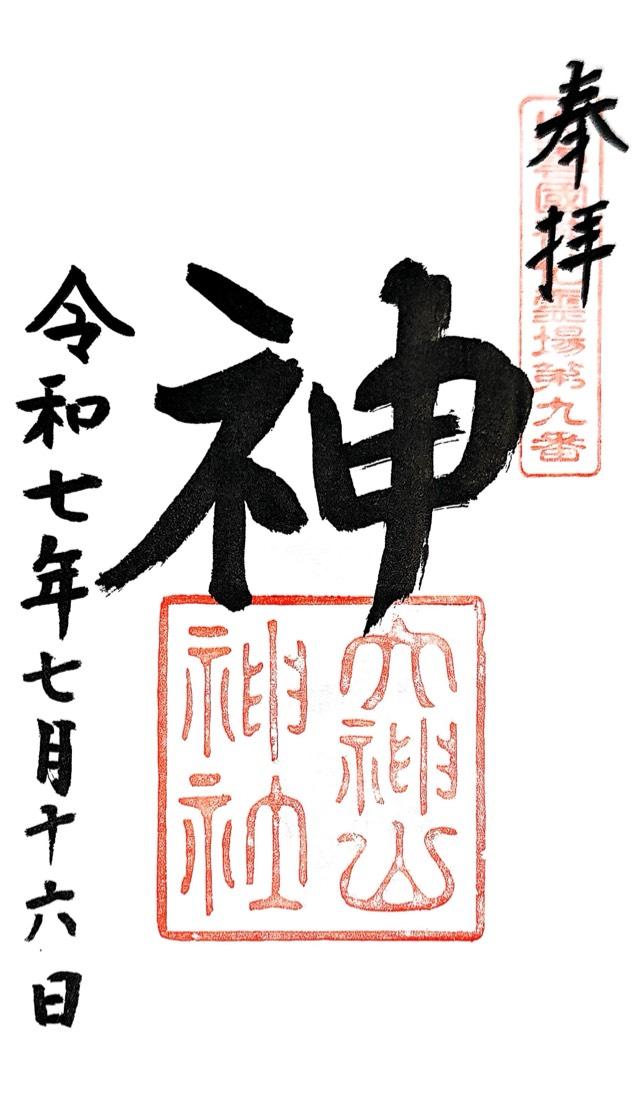 奉拝
國 霊場第九番
神
大神山
神社
令和七年七月十六日